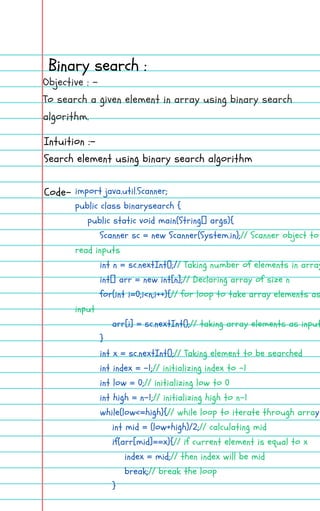 Binary search :
Objective : -
To search a given element in array using binary search
algorithm.
Intuition :-
Search element using binary search algorithm
Code- import java.util.Scanner;
public class binarysearch {
public static void main(String[] args){
Scanner sc = new Scanner(System.in);// Scanner object to
read inputs
int n = sc.nextInt();// Taking number of elements in array
int[] arr = new int[n];// Declaring array of size n
for(int i=0;i<n;i++){// for loop to take array elements as
input
arr[i] = sc.nextInt();// taking array elements as input
}
int x = sc.nextInt();// Taking element to be searched
int index = -1;// initializing index to -1
int low = 0;// initializing low to 0
int high = n-1;// initializing high to n-1
while(low<=high){// while loop to iterate through array
int mid = (low+high)/2;// calculating mid
if(arr[mid]==x){// if current element is equal to x
index = mid;// then index will be mid
break;// break the loop
}